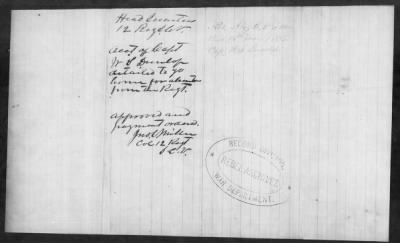 Head Quarters
12 Regt S.C.V.
acct of Capt
W S Dunlop
detailed to go
home for absentees
from the Regt.
approved and
payment ordered.
Jno L Miller
Col 12 Regt
S.C.V.
RECORD DIVISION
REBEL ARCHIVES
WAR DEPARTMENT.